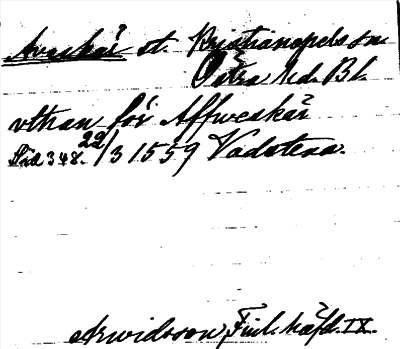 Avaskär st. Kristianopels sn.
Östra hd. Bl.
vthan för Affweskär
Sid 348. 22/3 1559 Vadstena.
Arwidsson, Finl. häfd. IX.